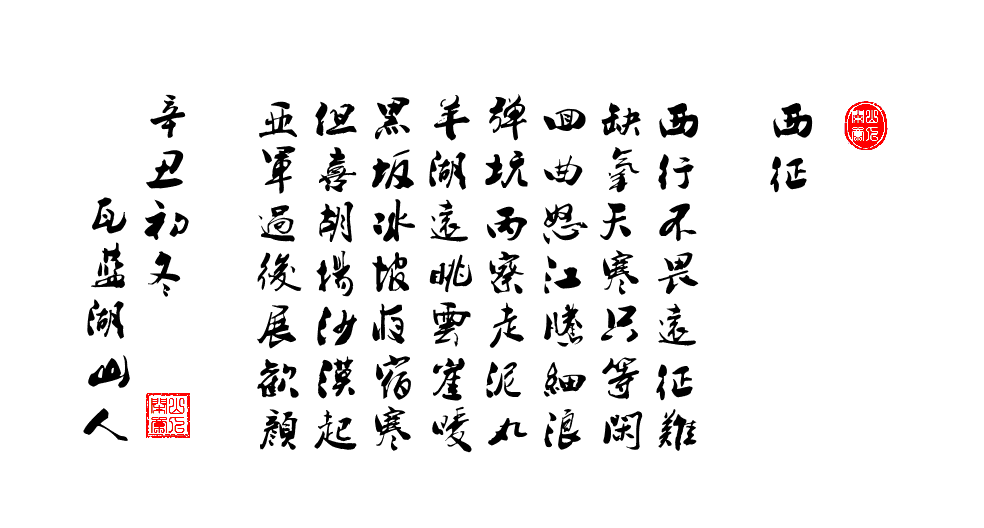 西征
西行不畏遠征難
缺氧天寒只等閑
回曲怒江騰細浪
彈坑丙察走泥丸
羊湖遠眺雲崖暖
黑坂冰坡恒宿寒
但喜胡揚沙漠起
亚軍過後展歡顏
辛丑初冬
瓦藍湖山人